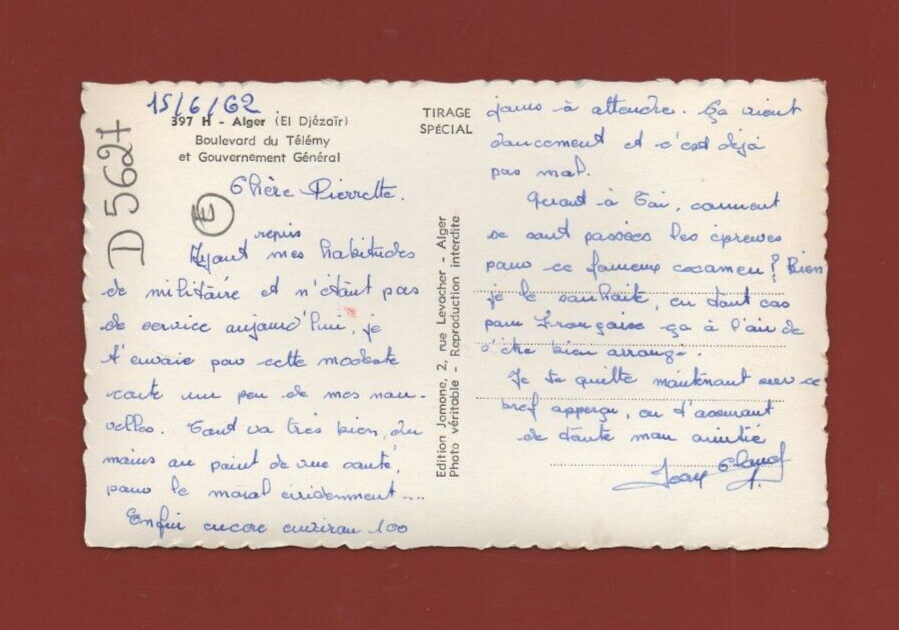 15/6/62
397 H - Alger (El Djézaïr)
Boulevard du Télémy
et Gouvernement Général
D 5627
E
Chère Pierrette.
repris
Ayant mes habitudes
de militaire et n'étant pas
de service aujourd'hui, je
t'envoie par cette modeste
carte un peu de mes nou-
velles. Tout va très bien, du
moins au point de vue santé,
pour le moral évidemment....
Enfin encore environ 100
TIRAGE
SPÉCIAL
Edition Jomone, 2, rue Levacher - Alger
Photo véritable - Reproduction interdite
jours à attendre. Ça vient
doucement et c'est déjà
pas mal.
Quant à toi, comment
se sont passées les épreuves
pour ce fameux examen ? Bien
je le souhaite, en tout cas
pour Françoise ça à l'air de
s'être bien arrangé.
Je te quitte maintenant sur ce
bref apperçu, en t'assurant
de toute mon amitié
Jean Claude